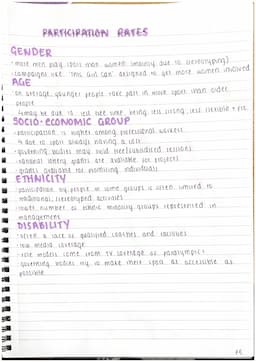 PARTICIPATION RATES
GENDER
· more men play sport than women (mainly due to stereotyping)
· campaigns like 'This Girl Can' designed to get more women involved
AGE
· on average, younger people take part in more sport than older
people
↳ may be due to less free time, being less strong, less flexible + etc.
SOCIO-ECONOMIC GROUP
· participation is higher among professional workers
↳ due to sport usually having a cost
· governing bodies may hold free/subsidised sessions
· national lottery grants are available for projects
· grants available for promising individuals
ETHNICITY
· participation by people in some groups is often limited to
traditional, stereotyped activities
· lower number of ethnic minority groups represented in
management
DISABILITY
· often a lack of qualified coaches and facilities
· low media coverage
· role models come from TV coverage of paralympics
· governing bodies try to make their sport as accessible as
possible